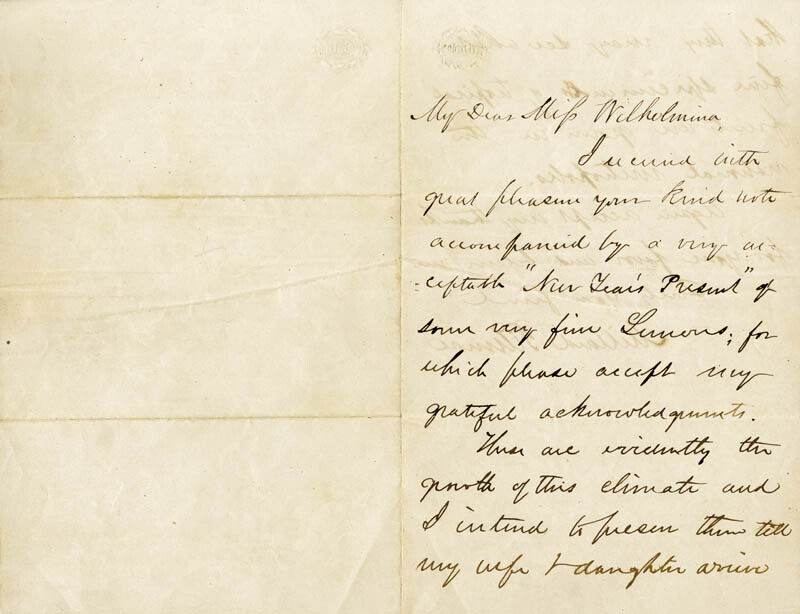 My Dear Miss Wilhelmina,
I received with
great pleasure your kind note
accompanied by a very ac-
-ceptable "New Year's Present" of
some very fine Lemons; for
which please accept my
grateful acknowledgments.
These are evidently the
growth of this climate and
I intend to preserve them till
my wife & daughter arrive